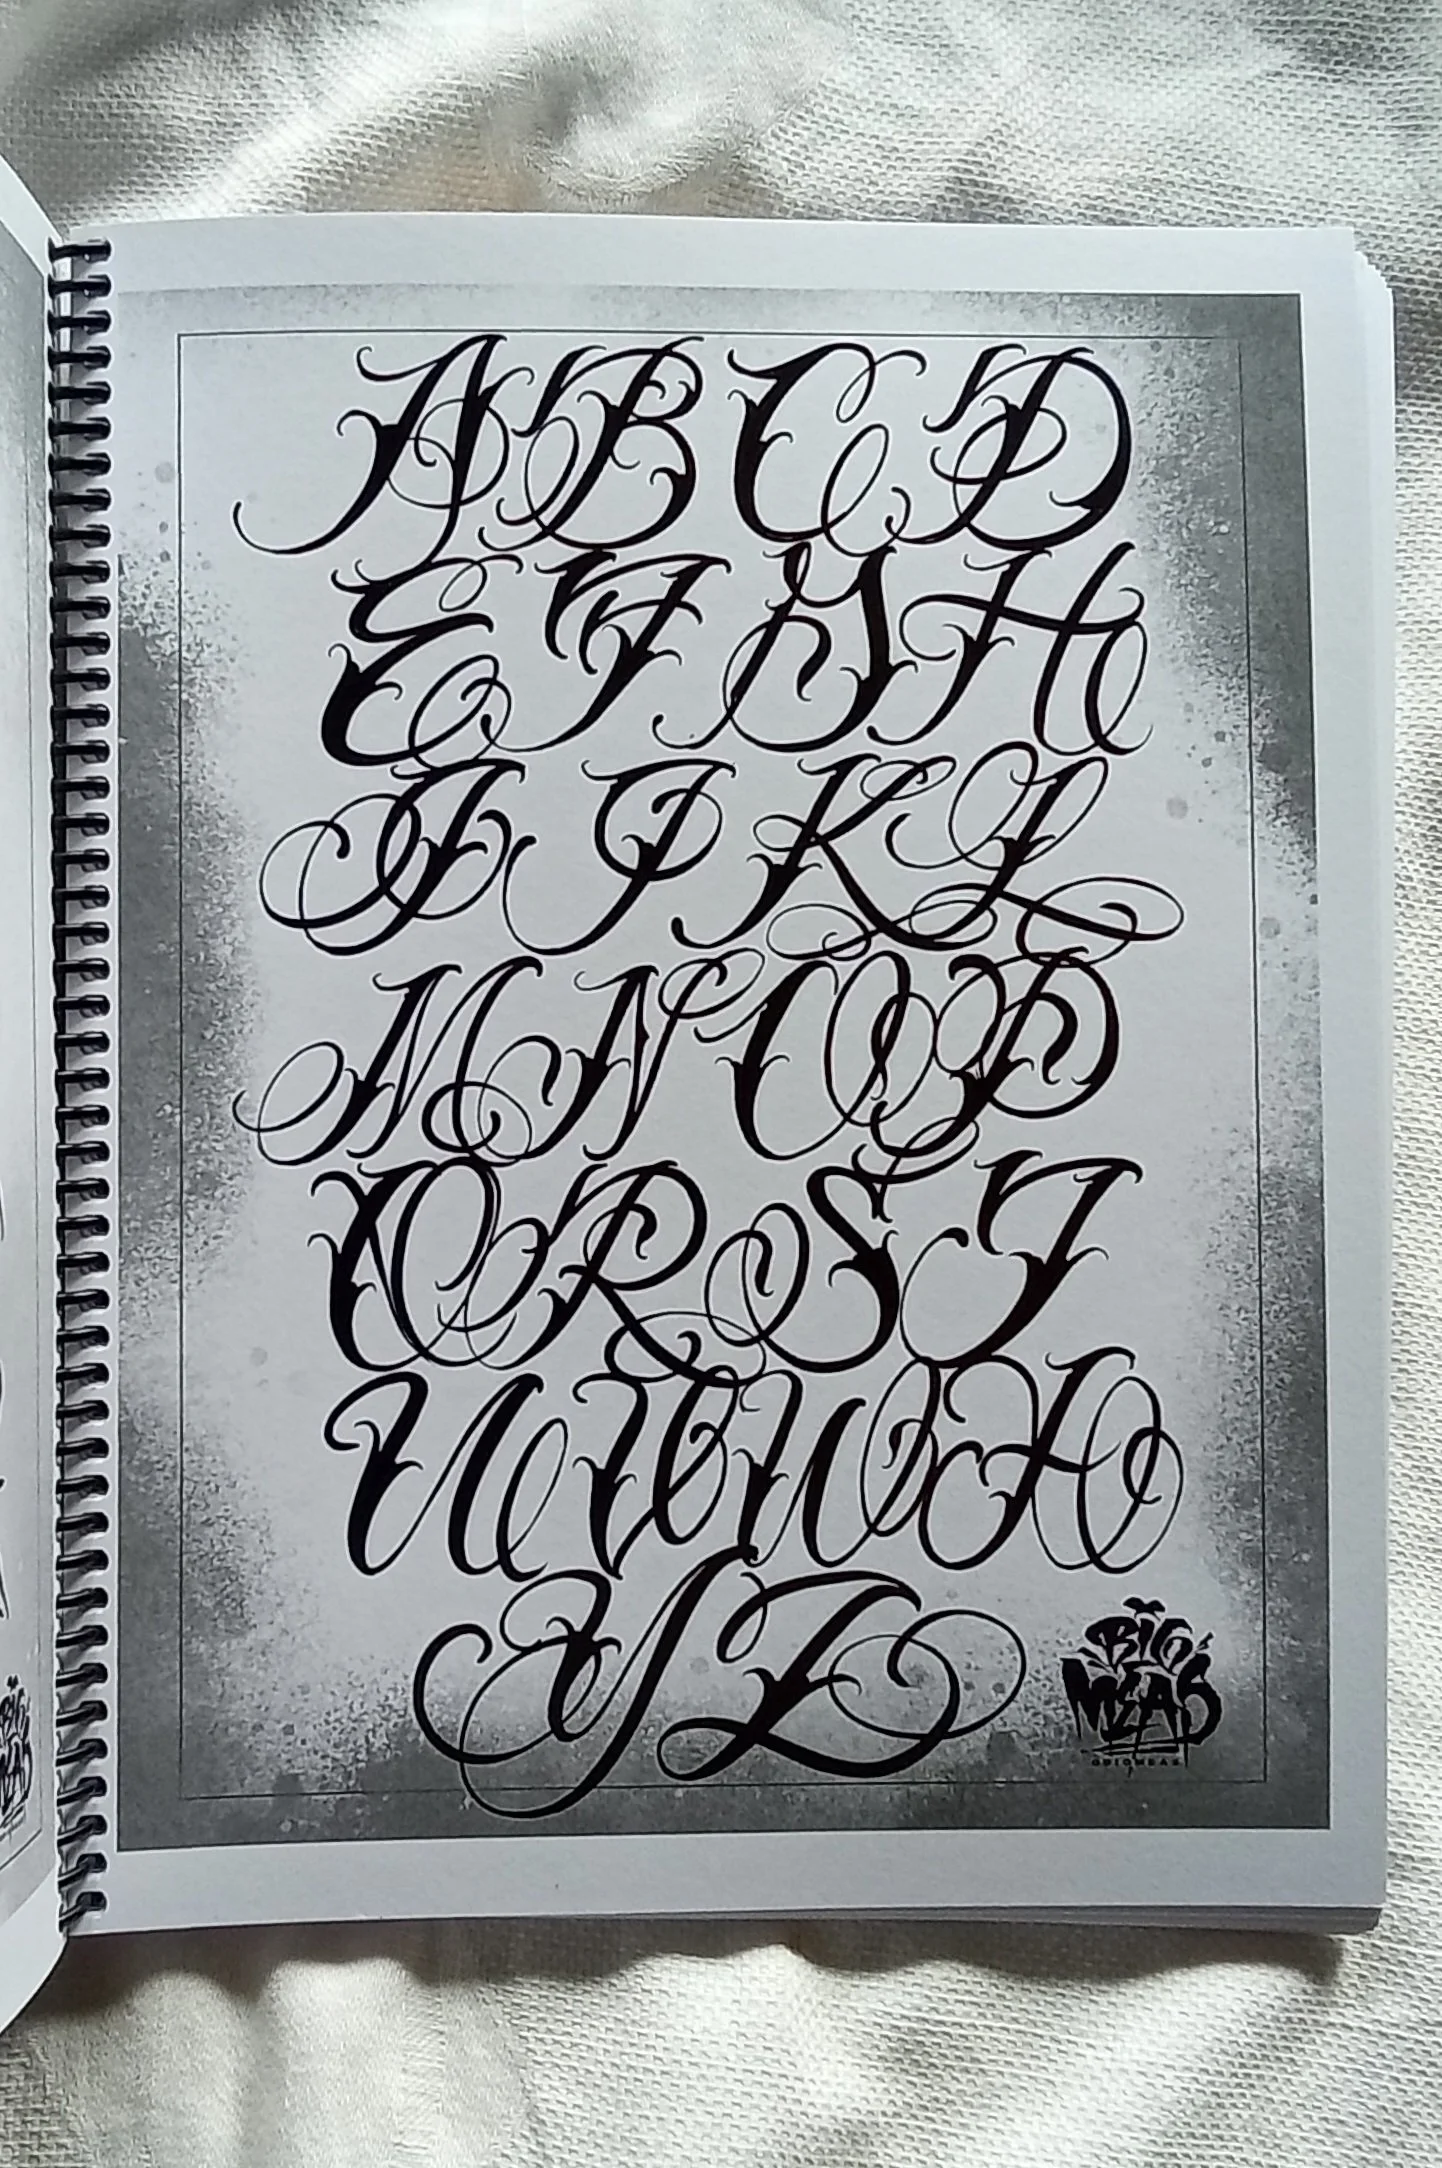 A B C D
E F G H
I J K L
M N O P
Q R S T
U V W X
Y Z
BIG
MEAS
@BIGMEAS
BIG
MEAS